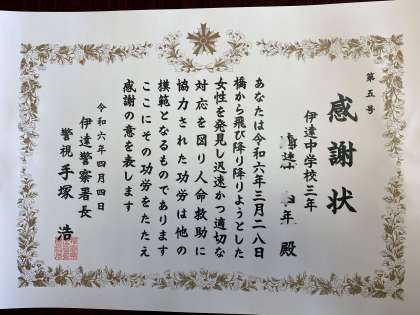 第五号
感謝状
伊達中学校三年
年 殿
あなたは令和六年三月二八日
橋から飛び降り降りようとした
女性を発見し迅速かつ適切な
対応を図り人命救助に
協力された功労は他の
模範となるものであります
ここにその功労をたたえ
感謝の意を表します
令和六年四月四日
伊達警察署長
警視 手塚 浩